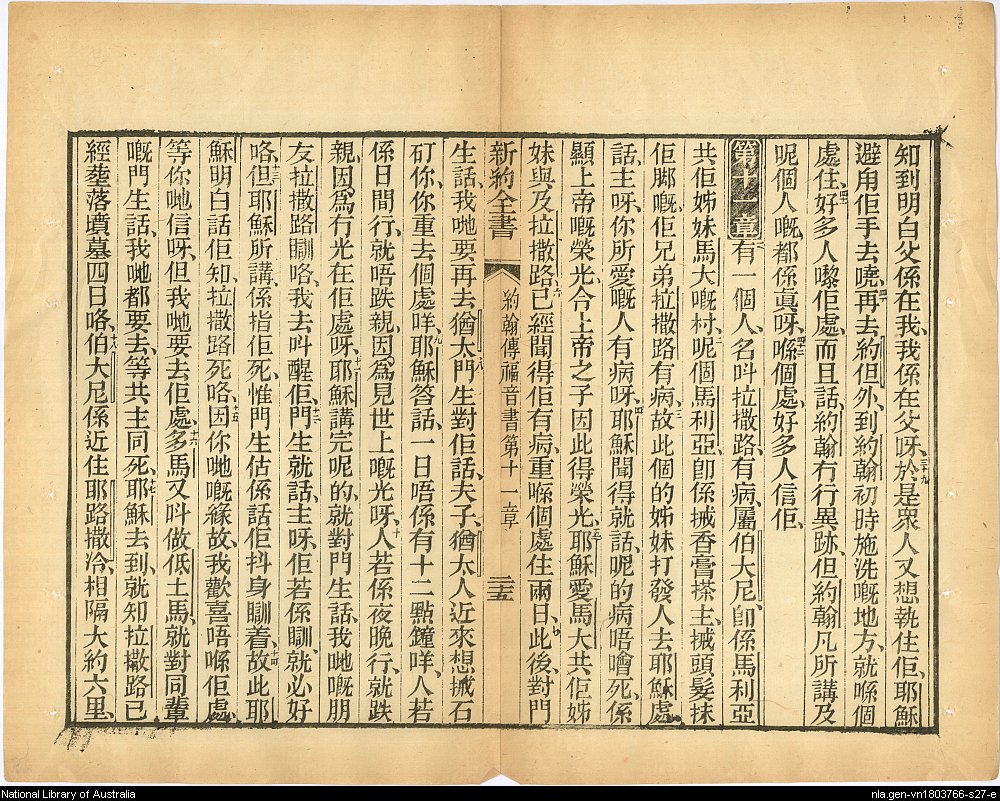 知到明白父係在我、我係在父呀、三十九於是衆人又想執住佢、耶穌
避甪佢手去嘵、四十再去約但外、到約翰初時施洗嘅地方、就喺個
處住、四一好多人嚟佢處、而且話、約翰冇行異跡、但約翰凡所講及
呢個人嘅、都係眞呀、四二喺個處、好多人信佢、
第十一章 一有一個人、名叫拉撒路、有病、屬伯大尼、卽係馬利亞
共佢姊妹馬大嘅村、二呢個馬利亞、卽係搣香膏搽主、搣頭髮抹
佢脚嘅、佢兄弟拉撒路有病、三故此個的姊妹打發人去耶穌處
話、主呀、你所愛嘅人有病呀、四耶穌聞得就話、呢的病唔噲死、係
顯上帝嘅榮光、令上帝之子因此得榮光、五耶穌愛馬大共佢姊
妹與及拉撒路、六已經聞得佢有病、重喺個處住兩日、七此後、對門
新約全書 約翰傳福音書第十一章 三五
生話、我哋要再去猶太、八門生對佢話、夫子、猶太人近來想搣石
矴你、你重去個處咩、九耶穌答話、一日唔係有十二點鐘咩、人若
係日間行、就唔跌親、因爲見世上嘅光呀、十人若係夜晚行、就跌
親、因爲冇光在佢處呀、十一耶穌講完呢的、就對門生話、我哋嘅朋
友拉撒路瞓咯、我去呌醒佢、十二門生就話、主呀、佢若係瞓、就必好
咯、十三但耶穌所講、係指佢死、惟門生估係話佢抖身瞓着、十四故此耶
穌明白話佢知、拉撒路死咯、十五因你哋嘅緣故、我歡喜唔喺佢處、
等你哋信呀、但我哋要去佢處、十六多馬又呌做低土馬、就對同輩
嘅門生話、我哋都要去、等共主同死、十七耶穌去到、就知拉撒路已
經塟落墳墓四日咯、十八伯大尼係近住耶路撒冷、相隔大約六里、
National Library of Australia
nla.gen-vn1803766-s27-e